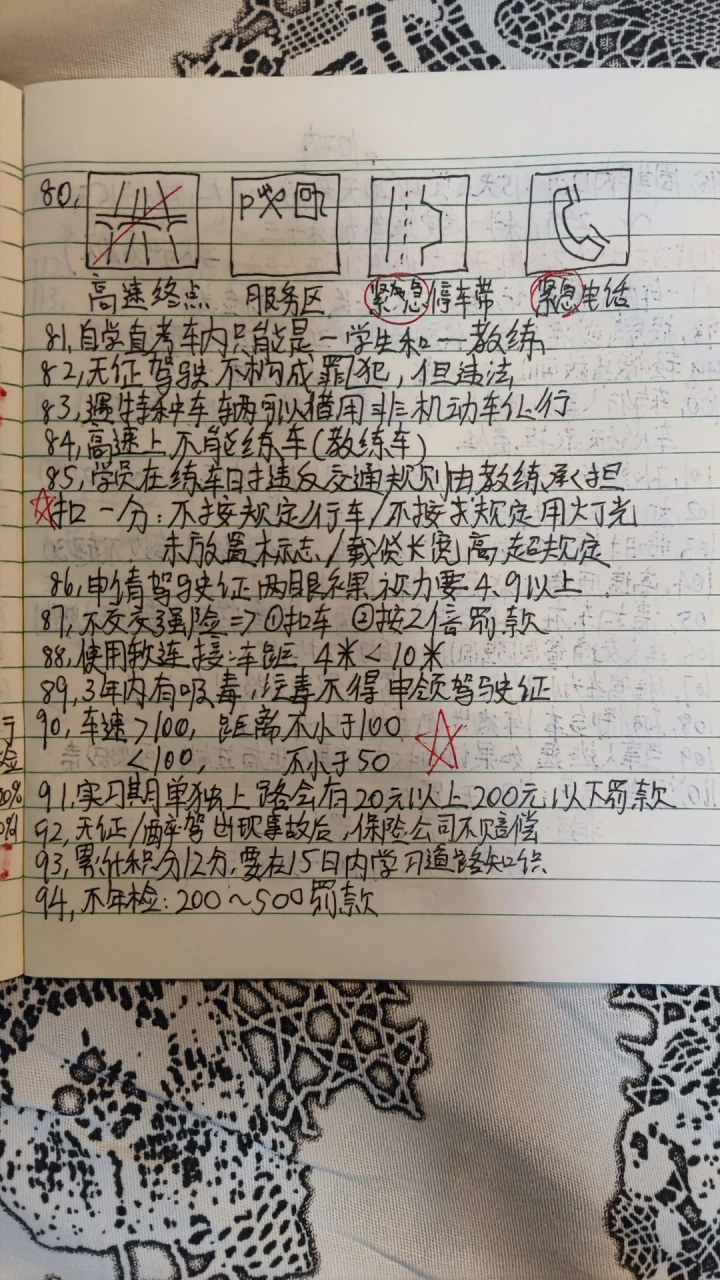 80,
P
高速终点 服务区 紧急停车带 紧急电话
81,自学自考车内只能是一学生和一教练
82,无证驾驶不构成罪犯,但违法
83,遇特种车辆可以借用非机动车仃行
84,高速上不能练车(教练车)
85,学员在练车时违反交通规则由教练承担
☆扣一分:不按规定行车/不按规定用灯光
未放置标志/载货长宽高超规定
86,申请驾驶证两眼裸视力要4.9以上
87,不交交强险⇒①扣车 ②按2倍罚款
88,使用软连接:车距4米<10米
89,3年内有吸毒,注毒不得申领驾驶证
90,车速>100,距离不小于100 ☆
<100, 不小于50
91,实习期单独上路会有20元以上200元以下罚款
92,无证/醉驾出现事故后,保险公司不赔偿
93,累计积分12分,要在15日内学习道路知识
94,不年检:200~500罚款